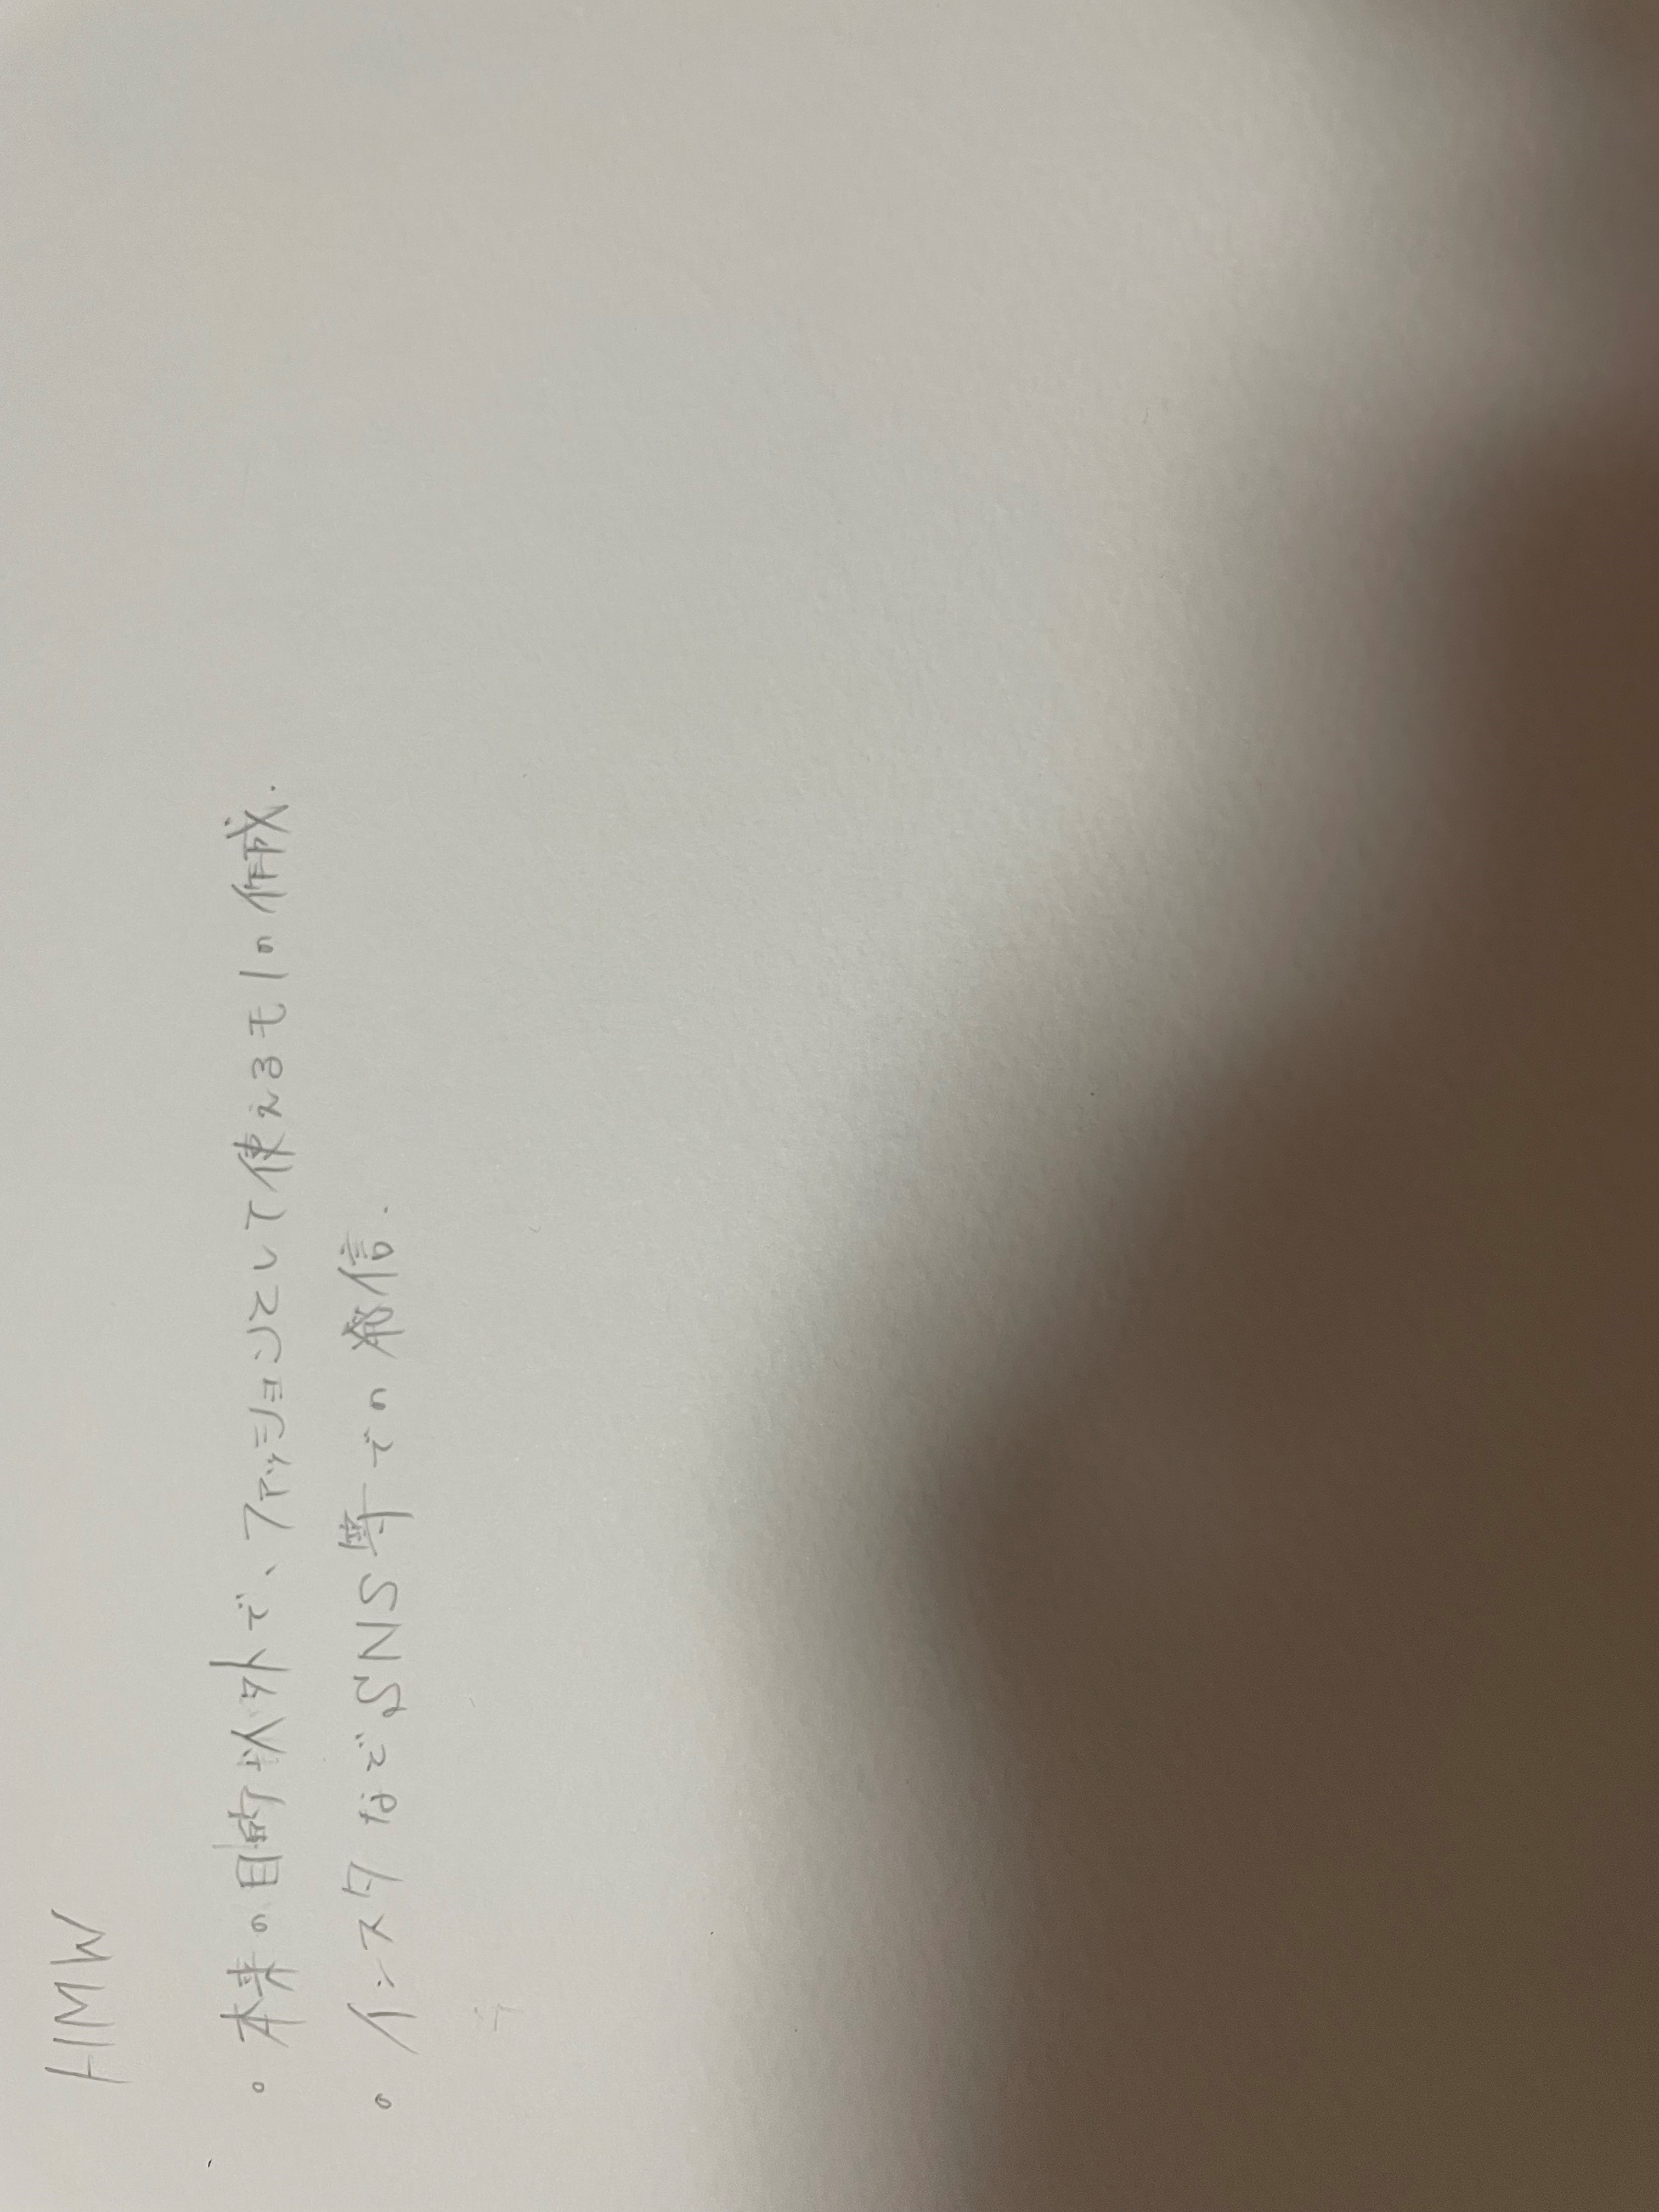 HMW
。本来の目的以外で、ファッションとして使えるモノの作成.
。インスタなどSNS等での発信.